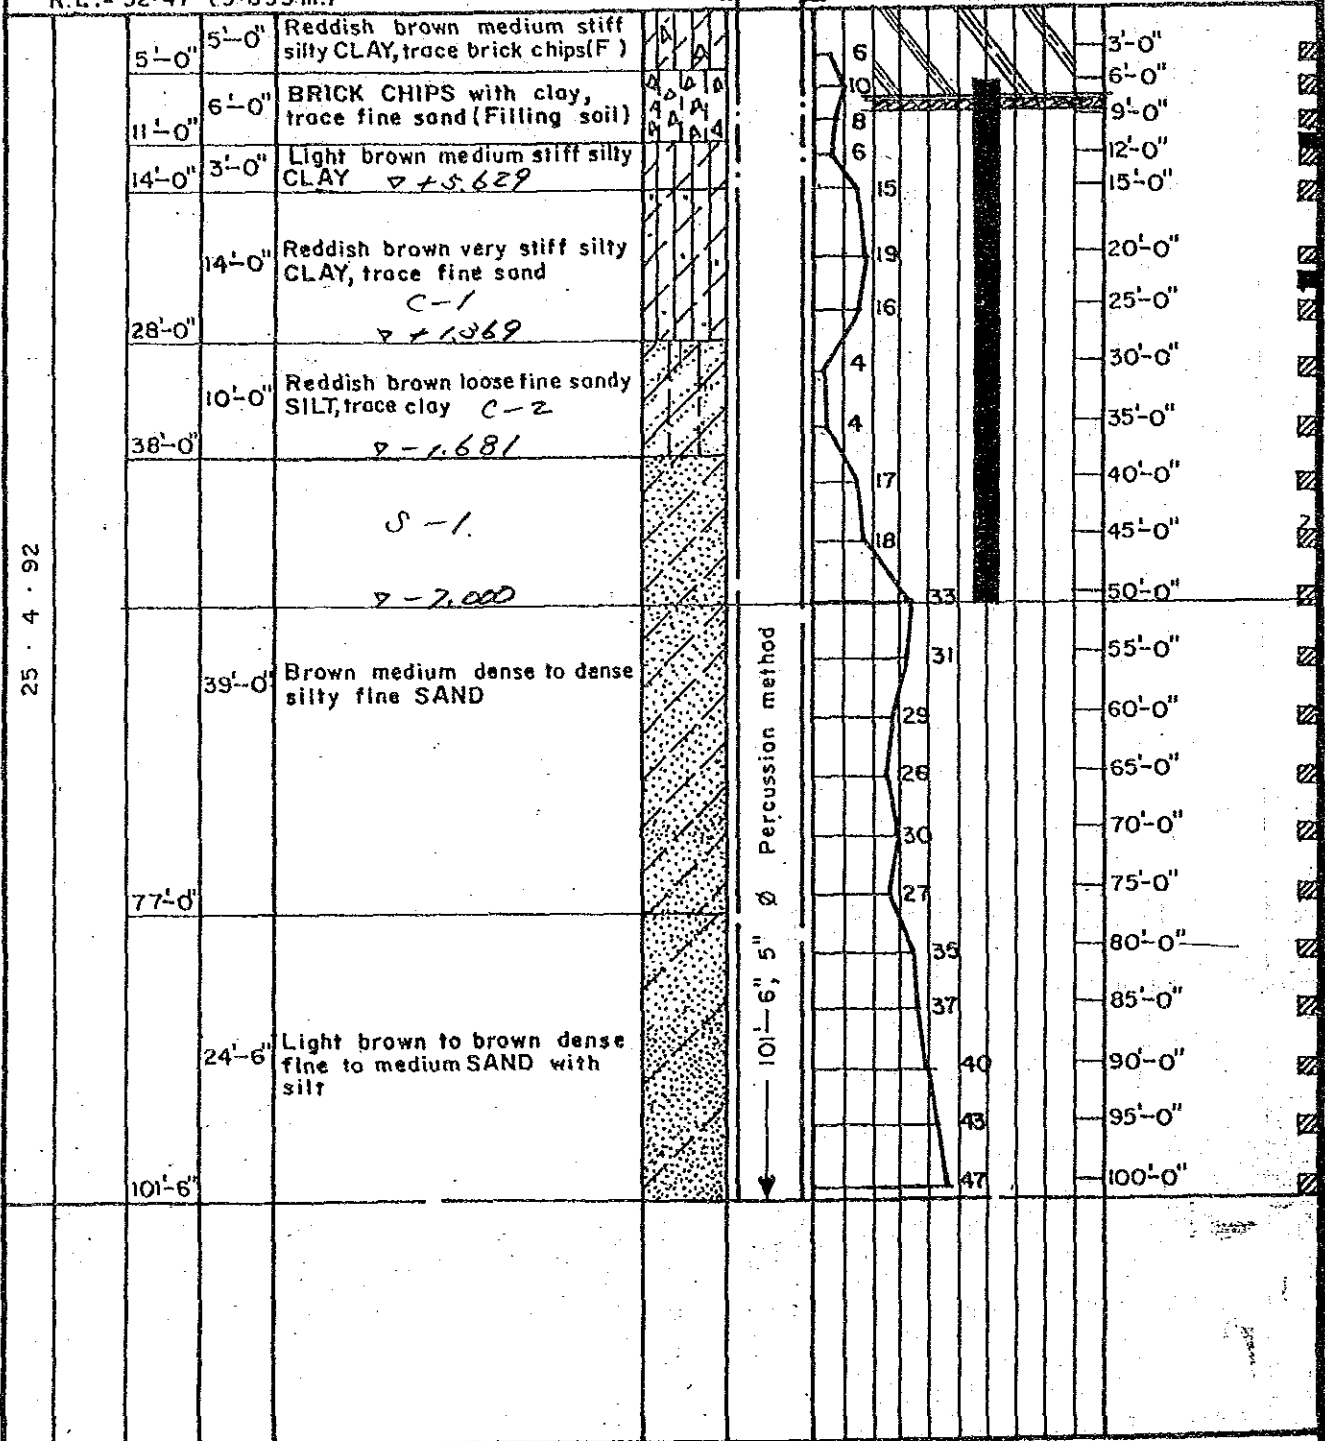 5'-0" 5'-0" Reddish brown medium stiff
silty CLAY, trace brick chips (F)
11'-0" 6'-0" BRICK CHIPS with clay,
trace fine sand (Filling soil)
14'-0" 3'-0" Light brown medium stiff silty
CLAY ▽ +5.629
28'-0" 14'-0" Reddish brown very stiff silty
CLAY, trace fine sand
C-1
38'-0" 10'-0" Reddish brown loose fine sandy
SILT, trace clay C-2
▽ -1.681
S-1.
77'-0" 39'-0" Brown medium dense to dense
silty fine SAND
101'-6" 24'-6" Light brown to brown dense
fine to medium SAND with
silt
25 . 4 . 92
101'-6", 5" Ø Percussion method
6
10
8
6
15
19
16
4
4
17
18
33
31
29
26
30
27
35
37
40
43
47
3'-0"
6'-0"
9'-0"
12'-0"
15'-0"
20'-0"
25'-0"
30'-0"
35'-0"
40'-0"
45'-0"
50'-0"
55'-0"
60'-0"
65'-0"
70'-0"
75'-0"
80'-0"
85'-0"
90'-0"
95'-0"
100'-0"